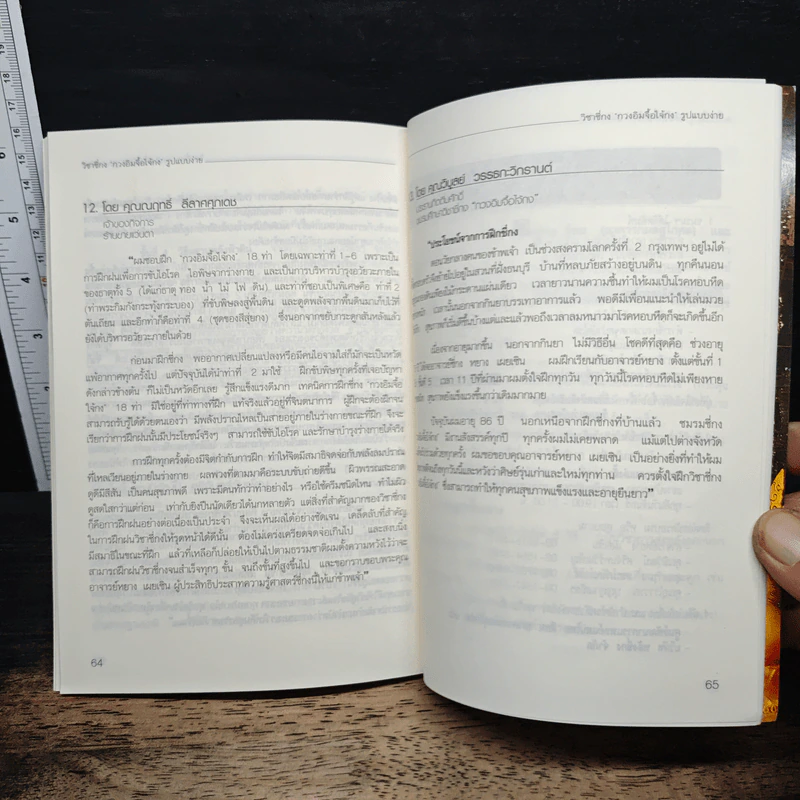 วิชาชี่กง "กวงอิมจื้อไจ้กง" รูปแบบง่าย
12. โดย คุณณฤทธิ์ ลีลาศศุภเดช
เจ้าของกิจการ
ร้านขายเวนดา
"ผมชอบฝึก "กวงอิมจื้อไจ้กง" 18 ท่า โดยเฉพาะท่าที่ 1-6 เพราะเป็น
การฝึกฝนเพื่อการขับไอโรค ไอพิษจากร่างกาย และเป็นการบริหารบำรุงอวัยวะภายใน
ของธาตุทั้ง 5 (ได้แก่ธาตุ ทอง น้ำ ไม้ ไฟ ดิน) และท่าที่ชอบเป็นพิเศษคือ ท่าที่ 2
(ท่าพระกิมกังกระทุ้งกระบอง) ที่ขับพิษลงสู่พื้นดิน และดูดพลังจากพื้นดินมาเก็บไว้ที่
ตันเถียน และอีกท่าก็คือท่าที่ 4 (ชุดของสี่สู่ยกง) ซึ่งนอกจากขยับกระดูกสันหลังแล้ว
ยังได้บริหารอวัยวะภายในด้วย
ก่อนมาฝึกชี่กง พออากาศเปลี่ยนแปลงหรือมีคนไอจามใส่ก็มักจะเป็นหวัด
แพ้อากาศทุกครั้งไป แต่ปัจจุบันได้นำท่าที่ 2 มาใช้ ฝึกขับพิษทุกครั้งที่เจอปัญหา
ดังกล่าวข้างต้น ก็ไม่เป็นหวัดอีกเลย รู้สึกแข็งแรงดีมาก เทคนิคการฝึกชี่กง "กวงอิมจื้อ
ไจ้กง" 18 ท่า มิใช่อยู่ที่ท่าทางที่ฝึก แท้จริงแล้วอยู่ที่จินตนาการ ผู้ฝึกจะต้องฝึกจน
สามารถรับรู้ได้ด้วยตนเองว่า มีพลังปราณไหลเป็นสายอยู่ภายในร่างกายขณะที่ฝึก จึงจะ
เรียกว่าการฝึกฝนนั้นมีประโยชน์จริงๆ สามารถใช้ขับไอโรค และรักษาบำรุงร่างกายได้จริง
การฝึกทุกครั้งต้องมีจิตกำกับการฝึก ทำให้จิตมีสมาธิจดจ่อกับพลังลมปราณ
ที่ไหลเวียนอยู่ภายในร่างกาย ผลพวงที่ตามมาคือระบบขับถ่ายดีขึ้น ผิวพรรณสะอาด
ดูดีมีสีสัน เป็นคนสุขภาพดี เพราะมีคนทักว่าทำอย่างไร หรือใช้ครีมชนิดไหน ทำไมผิว
ดูสดใสกว่าแต่ก่อน เท่ากับยิงปืนนัดเดียวได้นกหลายตัว แต่สิ่งที่สำคัญมากของวิชาชี่กง
ก็คือการฝึกฝนอย่างต่อเนื่องเป็นประจำ จึงจะเห็นผลได้อย่างชัดเจน เคล็ดลับที่สำคัญ
ในการฝึกฝนวิชาชี่กงให้รุดหน้าได้ดีนั้น ต้องไม่เคร่งเครียดจดจ่อเกินไป และสงบนิ่ง
มีสมาธิในขณะที่ฝึก แล้วที่เหลือก็ปล่อยให้เป็นไปตามธรรมชาติผมตั้งความหวังไว้ว่าจะ
สามารถฝึกฝนวิชาชี่กงจนสำเร็จทุกๆ ขั้น จนถึงขั้นที่สูงขึ้นไป และขอกราบขอบพระคุณ
อาจารย์หยาง เผยเซิน ผู้ประสิทธิประสาทความรู้ศาสตร์ชี่กงนี้ให้แก่ข้าพเจ้า"
64
วิชาชี่กง "กวงอิมจื้อไจ้กง" รูปแบบง่าย
โดย คุณวิบูลย์ วรรธกะวิกรานต์
"กวงอิมจื้อไจ้กง"
"ประโยชน์จากการฝึกชี่กง
ตอนวัยกลางคนของข้าพเจ้า เป็นช่วงสงครามโลกครั้งที่ 2 กรุงเทพฯ อยู่ไม่ได้
ย้ายไปอยู่ในสวนที่ฝั่งธนบุรี บ้านที่หลบภัยสร้างอยู่บนดิน ทุกคืนนอน
เพียงแค่ใช้ไม้กระดานแผ่นเดียว เวลายาวนานความชื้นทำให้ผมเป็นโรคหอบหืด
เวลานั้นนอกจากกินยาบรรเทาอาการแล้ว พอดีมีเพื่อนแนะนำให้เล่นมวย
สุขภาพก็เริ่มดีขึ้นบ้างแต่และแล้วพอถึงเวลาลมหนาวมาโรคหอบหืดก็จะเกิดขึ้นอีก
เนื่องจากอายุมากขึ้น นอกจากกินยา ไม่มีวิธีอื่น โชคดีที่สุดคือ ช่วงอายุ
อาจารย์ชี่กง หยาง เผยเซิน ผมฝึกเรียนกับอาจารย์หยาง ตั้งแต่ชั้นที่ 1
ที่ 5 เวลา 11 ปีที่ผ่านมาผมตั้งใจฝึกทุกวัน ทุกวันนี้โรคหอบหืดไม่เพียงหาย
สุขภาพยังแข็งแรงขึ้นกว่าเดิมมากมาย
ปัจจุบันผมอายุ 86 ปี นอกเหนือจากฝึกชี่กงที่บ้านแล้ว ชมรมชี่กง
มีงานสังสรรค์ทุกปี ทุกครั้งผมไม่เคยพลาด แม้แต่ไปต่างจังหวัด
ร่วมด้วยทุกครั้ง ผมขอขอบคุณอาจารย์หยาง เผยเซิน เป็นอย่างยิ่งที่ทำให้ผม
ในทุกวันนี้และหวังว่าศิษย์รุ่นเก่าและใหม่ทุกท่าน ควรตั้งใจฝึกวิชาชี่กง
ซึ่งสามารถทำให้ทุกคนสุขภาพแข็งแรงและอายุยืนยาว"
65